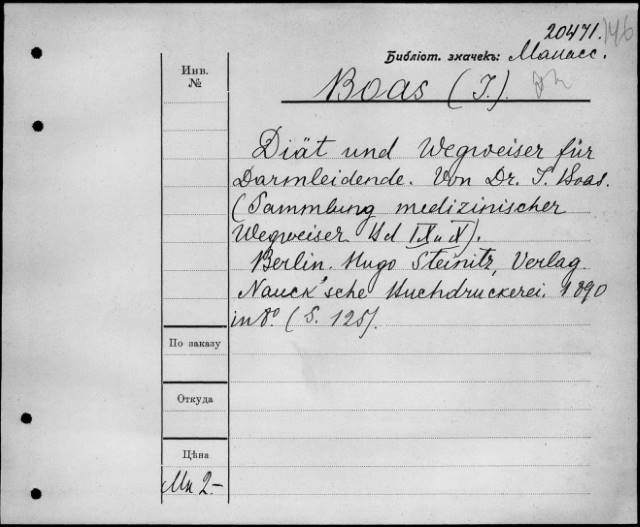 20471.
146
Библіот. значекъ: Манасс.
Инв.
№
Boas (I.).
Diät und Wegweiser für
Darmleidende. Von Dr. I. Boas.
(Sammlung medizinischer
Wegweiser Bd IX u X).
Berlin. Hugo Steinitz, Verlag.
Nauck'sche Buchdruckerei. 1890
in 8.° (S. 125).
По заказу
Откуда
Цѣна
Мк 2.-